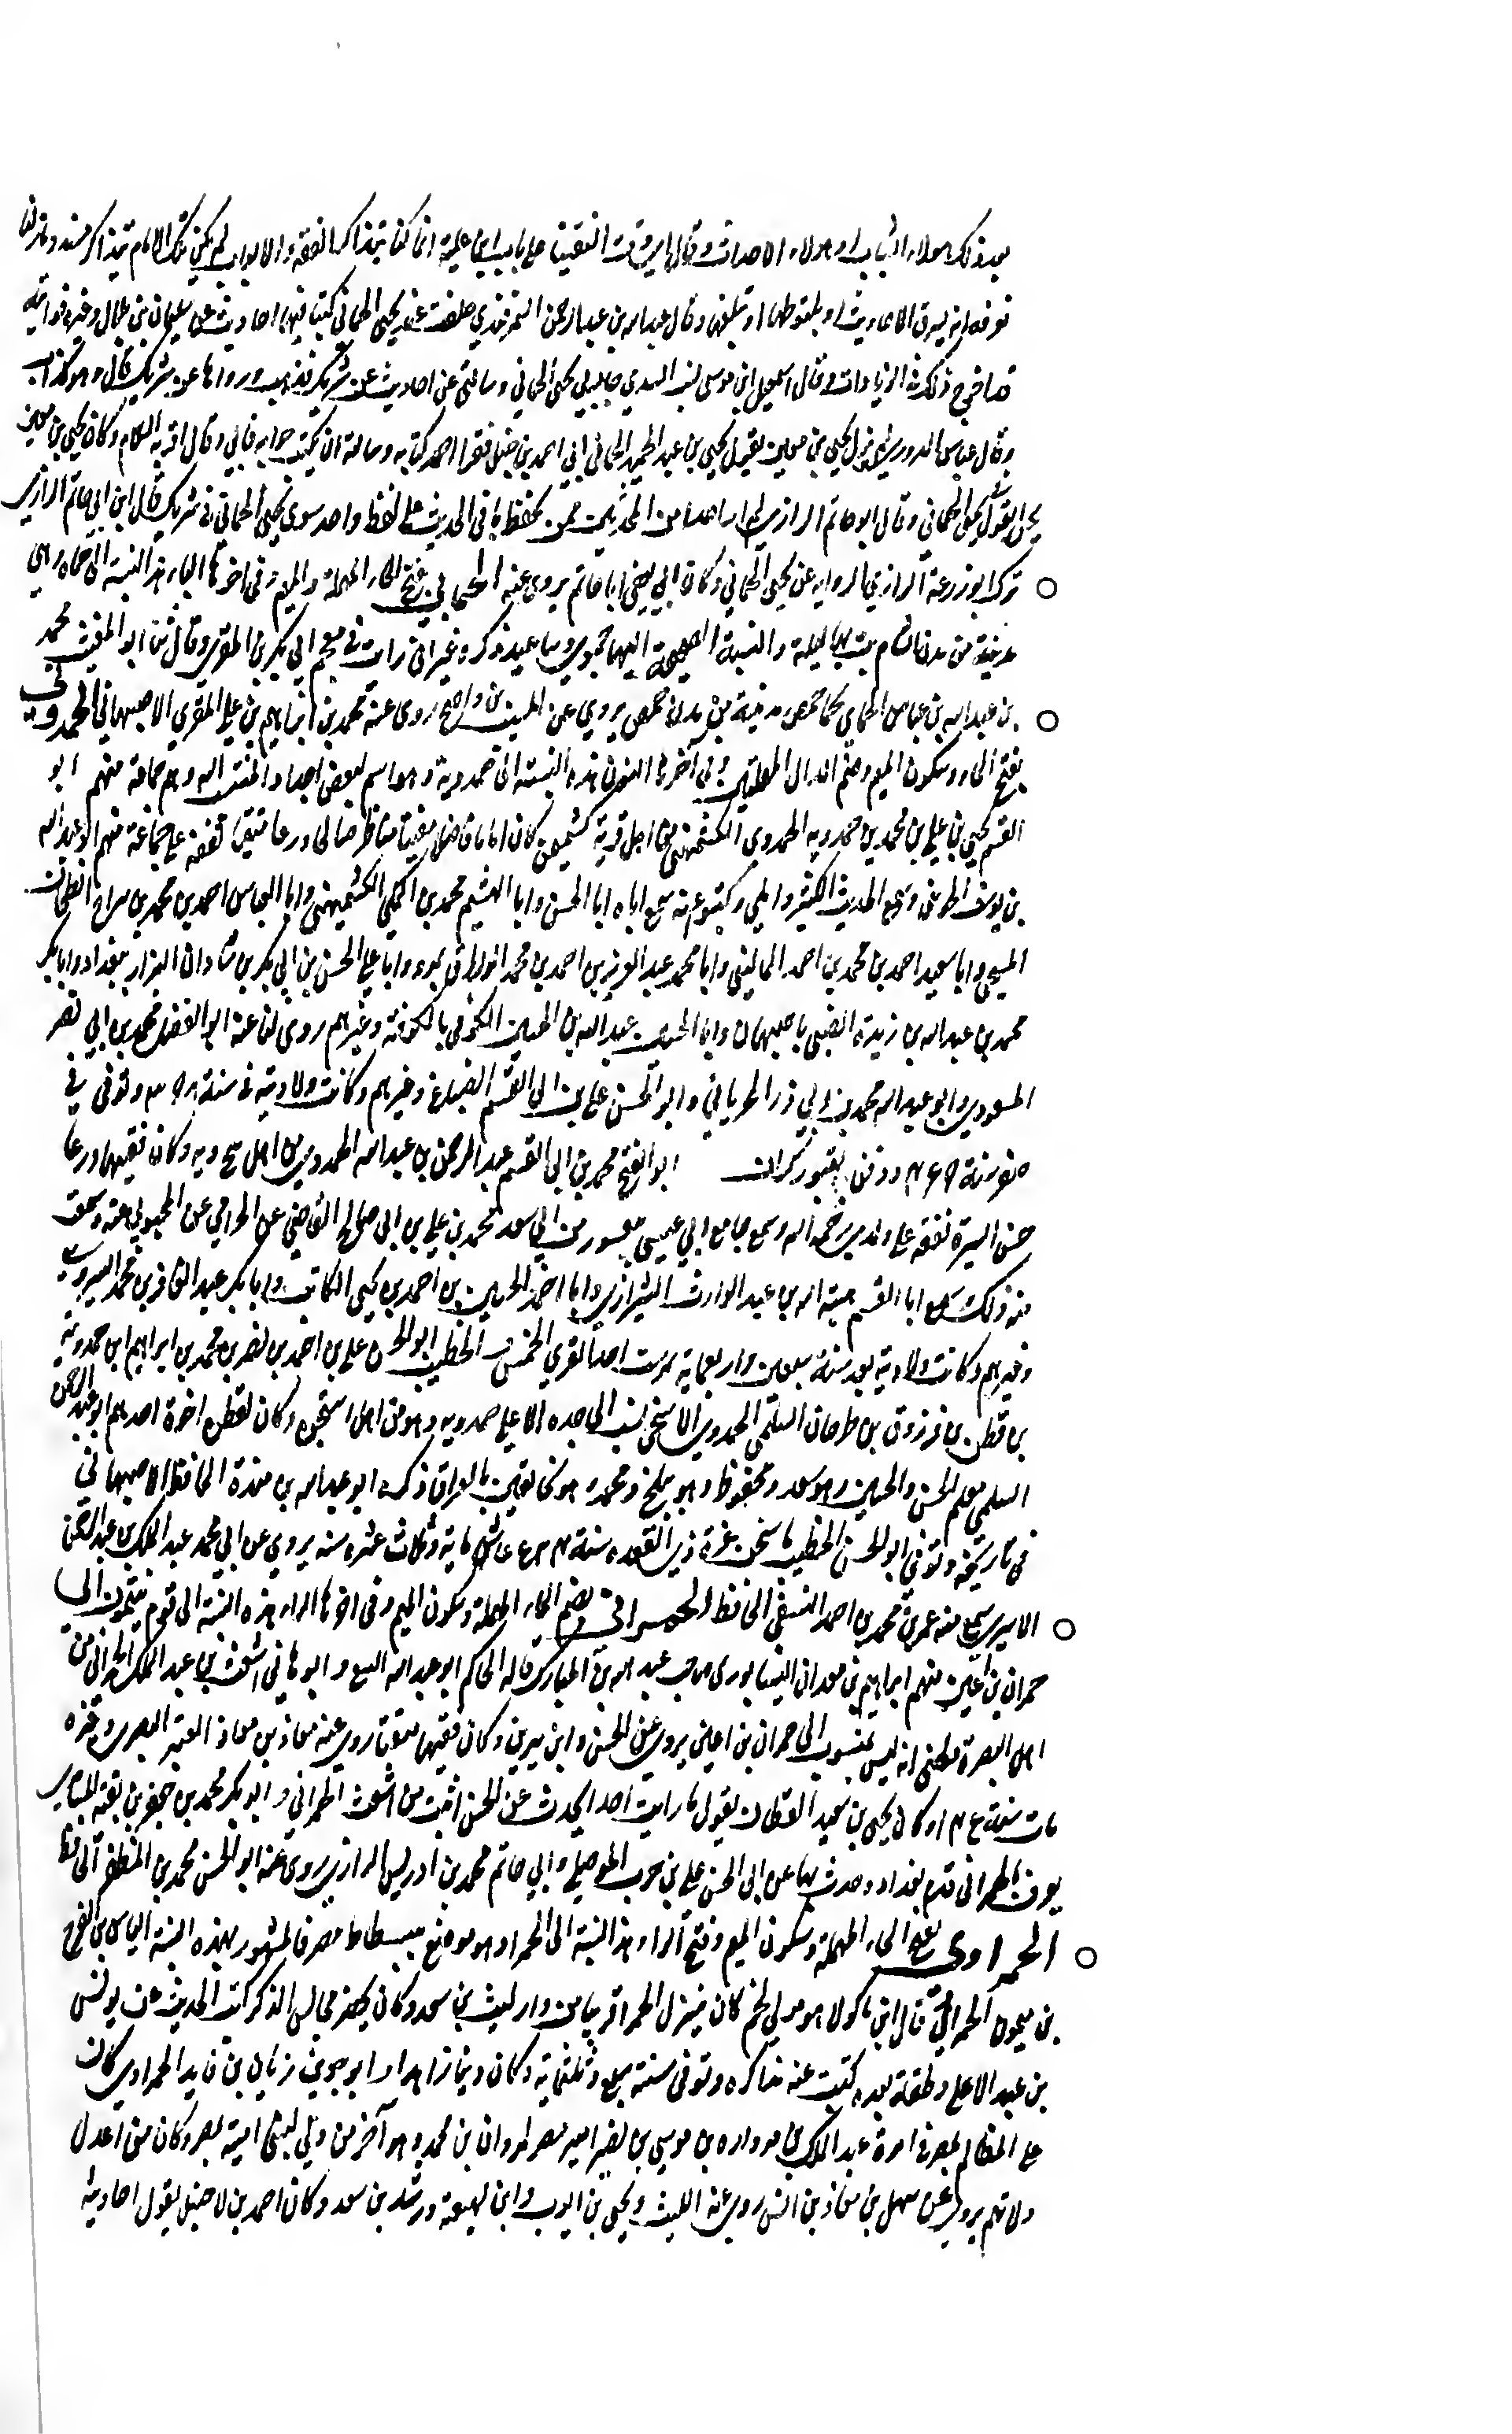 بعد ذلك هولاء الشباب او هولاء الاحداث وقال ابن وقت التقينا على باب ابن علية انما كنا نتذاكر الفقه والابواب لم يكن تلك الايام نتذاكر مسندا ونزلنا
نعرفه انه يسرق الاحاديث او يلتقطها او يتلقنها وقال عبدالله بن عبدالرحمن السمرقندي خلفت عند يحيى الحماني كتبا فيها احاديث عن سليمان بن بلال وغيره فرايته
قد اخرج ذلك في الزيادات وقال اسمعيل ابن موسى نسيب السدي جاءني يحيى الحماني وسالني عن احاديث عن شريك فذهب ورواها عن شريك قال وهو كذاب
وقال عباس الدوري لم يزل يحيى بن معين يقول يحيى بن عبد الحميد الحماني اتى احمد بن حنبل فقرا احمد كتابه وساله ان يكتب جوابه فابى وقال اقره السلام وكان يحيى بن معين
يجل القول في يحيى الحماني وقال ابو حاتم الرازي لم ار احدا من المحدثين ممن يحفظ ياتي الحديث على لفظ واحد سوى يحيى الحماني في شريك قال ابن ابي حاتم الرازي
ترك ابو زرعة الرازي الرواية عن يحيى الحماني وكان ابي يعني ابا حاتم يروي عنه الحماني بفتح الحاء المهملة والميم وفي اخرها الياء هذه النسبة الى حماه وهي
مدينة من مدن الشام بت بها ليلة والنسبة الصحيحة اليها حموي وساعيد ذكره غير اني رايت في معجم ابي بكر بن المقري وقال ثنا ابو المغيث محمد
بن عبدالله بن عباس الحماي بحماة حمص مدينة من مدن حمص يروي عن المسيب بن واضح روى عنه محمد بن ابراهيم بن علي المقري الاصبهاني الحمدوني
بفتح الحاء وسكون الميم وضم الدال المهملتين وفي آخرها النون هذه النسبة الى حمدويه وهو اسم لبعض اجداد المنتسب اليه وهم جماعة منهم ابو
القسم يحيى بن علي بن محمد بن حمدويه الحمدوي الكشميهني من اهل قرية كشميهن كان اماما فاضلا مفتيا مناظرا صالحا ورعا متقيا تفقه على جماعة منهم ابو عبدالله
بن يوسف الجويني وسمع الحديث الكثير واملى وكتبوا عنه سمع اباه ابا الحسن وابا الهيثم محمد بن المكي الكشميهني وابا العباس احمد بن محمد بن سراج الطحان
المسيحي وابا سعيد احمد بن محمد بن احمد الماليني وابا محمد عبد العزيز بن احمد بن محمد الورق بمرو وابا علي الحسن بن ابي بكر بن شاذان البزاز ببغداد وابا بكر
محمد بن عبدالله بن زيدة الضبي باصبهان وابا الحسن عبدالله بن الحسين الكوفي بالكوفة وغيرهم روى لنا عنه ابو الفضل محمد بن ابي نصر
المسعودي وابو عبدالله محمد بن ابي ذر الحرباني وابو الحسن علي بن ابي القسم الصباغ وغيرهم وكانت ولادته في سنة ٣٩٨ وتوفي في
صفر سنة ٤٦٩ ودفن بقبور كران ابو الفتح محمد بن ابي القسم عبد الرحمن بن عبدالله الحمدوي من اهل بنج ديه وكان فقيها ورعا
حسن السيرة تفقه على والدي رحمه الله وسمع جامع ابي عيسى بقسور من ابي سعد محمد بن علي بن ابي صالح القاضي عن الجراحي عن المحبوبي عنه وسمعت
منه ذلك سمع ابا القسم هبة الله بن عبد الوارث الشيرازي وابا احمد الحسين بن احمد بن يحيى الكاتب وابا بكر عبد الغافر بن محمد الشيروي
وغيرهم وكانت ولادته بعد سنة سبعين واربعماية بمرست احد القرى الخمس الخطيب ابو الحسن علي بن احمد بن نصر بن محمد بن ابراهيم ابن حمدويه
بن قطن بن فرزوق بن طرخان السلمي الحمدوي الاسنجي نسب الى جده الاعلى حمدويه وهو من اهل استجن وكان لقطن اخوة احدهم ابو عبد الرحمن
السلمي معلم الحسن والحسين وهو سعد ومحفوظ وهو ببلخ ومحمد وهو بخانقين بالعراق ذكره ابو عبدالله بن مندة الحافظ الاصبهاني
في تاريخه وتوفي ابو الحسن الخطيب باسنجن غرة ذي القعده سنة ٤٣٣ عاش ماية وثلاث عشره سنه يروي عن ابي محمد عبد الملك بن عبد الرحمن
الاسيري سمع منه عمر بن محمد بن احمد النسفي الحافظ الحمراني بضم الحاء المهملة وسكون الميم وفي اخرها الراء هذه النسبة الى قوم ينتمون الى
حمران بن اعين منهم ابراهيم بن معدان النيسابوري صاحب عبد الله بن المبارك قاله الحاكم ابو عبدالله البيع وابو هاني اشعث بن عبد الملك الحمراني من
اهل البصرة وظني انه ليس بمنسوب الى حمران بن اعين يروي عن الحسن وابن سيرين وكان فقيها متقنا روى عنه معاذ بن معاذ العنبري البصري وغيره
مات سنة ١٤٢ وكان يحيى بن سعيد القطان يقول ما رايت احدا يحدث عن الحسن اثبت من اشعث الحمراني وابو بكر محمد بن جعفر بن بقية المستامير
يعرف بالحمراني قدم بغداد وحدث بها عن ابي الحسن علي بن حرب الموصلي وابي حاتم محمد بن ادريس الرازي روى عنه ابو الحسن محمد بن المظفر الحافظ
الحمراوي بفتح الحاء المهملة وسكون الميم وفتح الراء هذه النسبة الى الحمراء وهو موضع بفسطاط مصر فالمشهور بهذه النسبة الياس بن الفرج
بن ميمون الحمراوي قال ابن ماكولا هو مولى لخم كان ينزل الحمراء قريبا من دار ليث بن سعد وكان يحضر مجالس الذكر كتب الحديث عن يونس
بن عبد الاعلى وطبقة بعده كتبت عنه مذاكره وتوفي سنة سبع وثلثماية وكان دينا زاهدا وابو جوين زبان بن فايد الحمراوي كان
على المظالم بمصر في امرة عبد الملك بن مرواره بن موسى بن نصير امير مصر لمروان بن محمد وهو آخر من ولي لبني امية بمصر وكان من اعدل
ولاتهم يروي عن سهل بن معاذ بن انس روى عنه الليث ويحيى بن ايوب وابن لهيعة ورشدين بن سعد وكان احمد بن حنبل يقول احاديثه